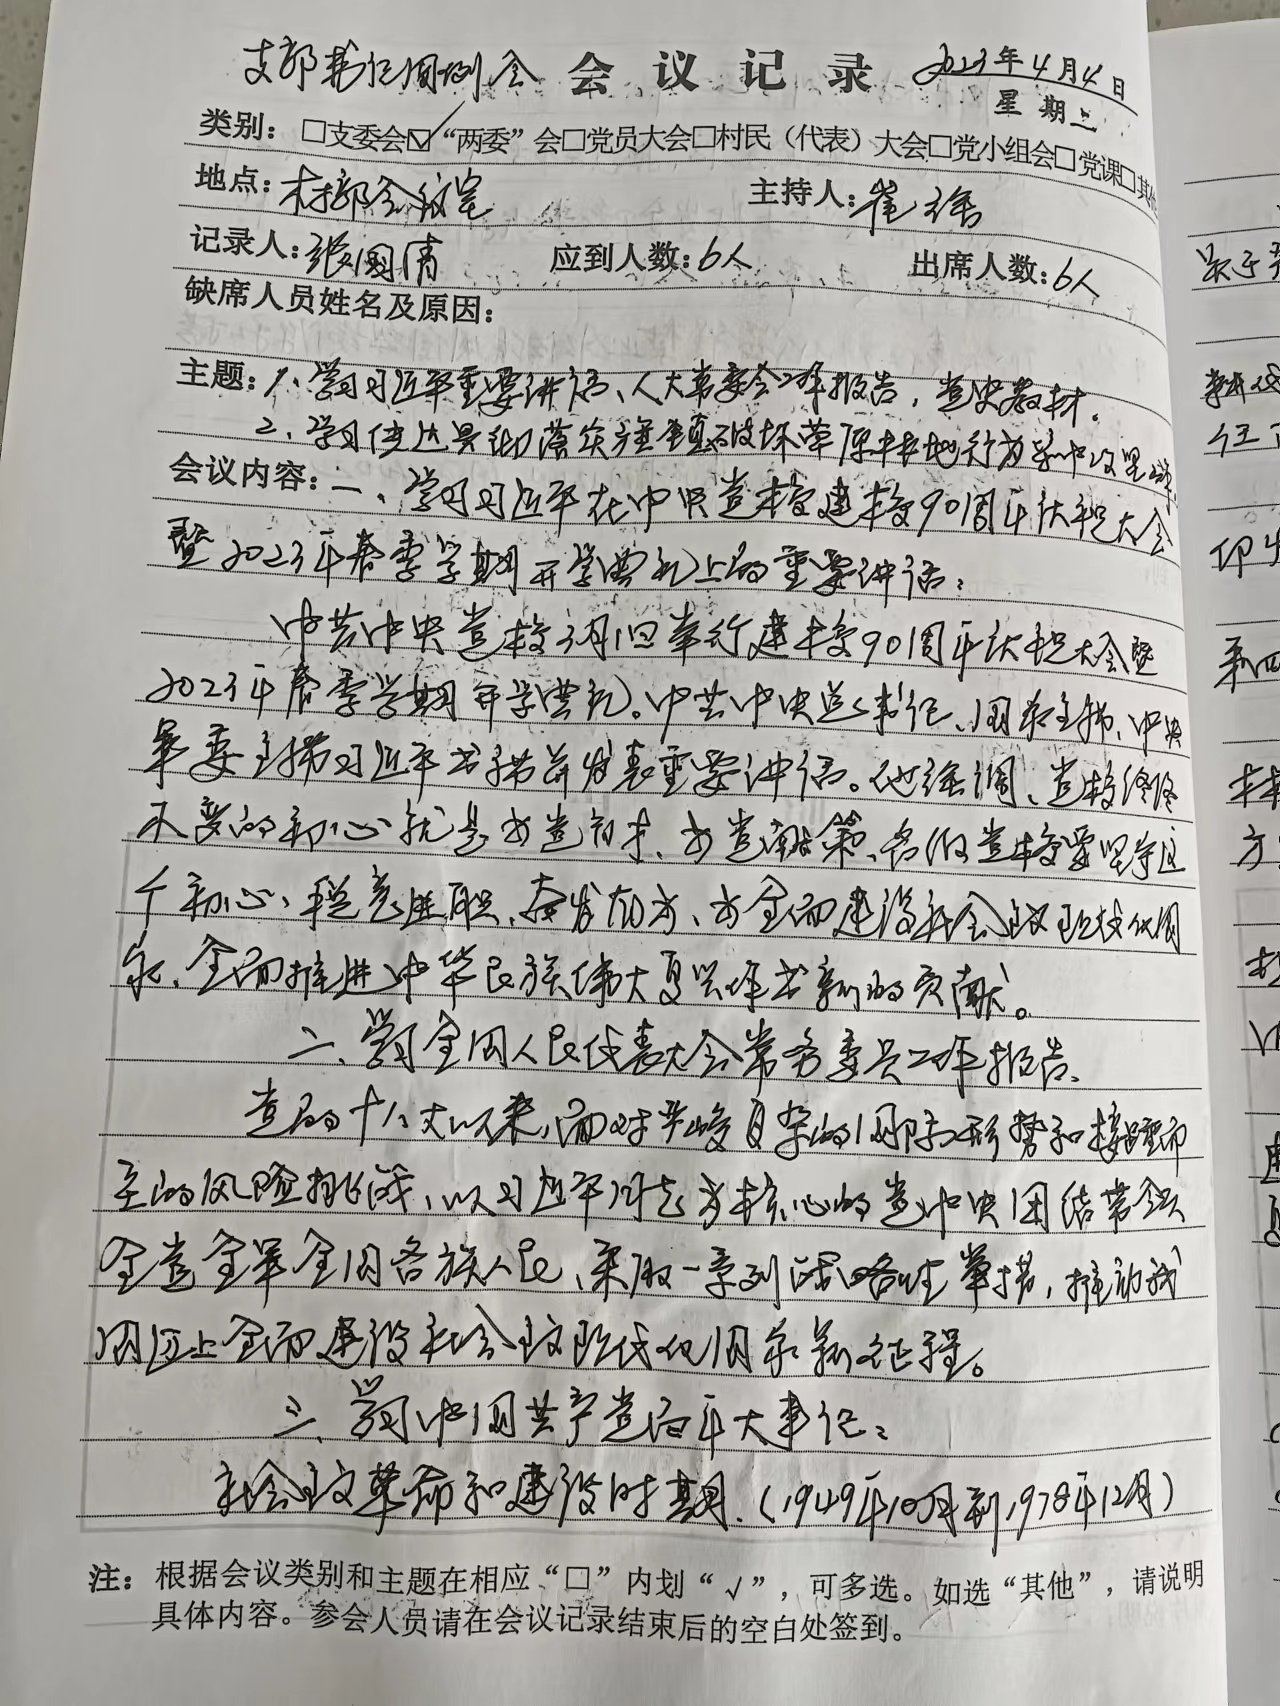 支部书记周例会 会议记录 2023年4月4日
星期二
类别：□支委会☑“两委”会□党员大会□村民（代表）大会□党小组会□党课□其他
地点：村部会议室 主持人：崔
记录人：张国清 应到人数：6人 出席人数：6人
缺席人员姓名及原因：
主题：1、学习习近平重要讲话、人大常委会工作报告，党史教材。
2、学习传达 破坏草原林地行为
会议内容：一、学习习近平在中央党校建校90周年庆祝大会
暨2023年春季学期开学典礼上的重要讲话：
中共中央党校3月1日举行建校90周年庆祝大会暨
2023年春季学期开学典礼。中共中央总书记、国家主席、中央
军委主席习近平出席并发表重要讲话。他强调、党校始终
不变的初心就是为党育才、为党献策、各级党校要坚守这
个初心、锐意进取、奋发有为、为全面建设社会主义现代化国
家、全面推进中华民族伟大复兴作出新的贡献。
二、学习全国人民代表大会常务委员工作报告、
党的十八大以来，面对严峻复杂的国际形势和接踵而
至的风险挑战、以习近平同志为核心的党中央团结带领
全党全军全国各族人民、采取一系列战略性举措，推动我
国迈上全面建设社会主义现代化国家新征程。
三、学习中国共产党百年大事记：
社会主义革命和建设时期.（1949年10月到1978年12月）
注：根据会议类别和主题在相应“□”内划“√”，可多选。如选“其他”，请说明
具体内容。参会人员请在会议记录结束后的空白处签到。